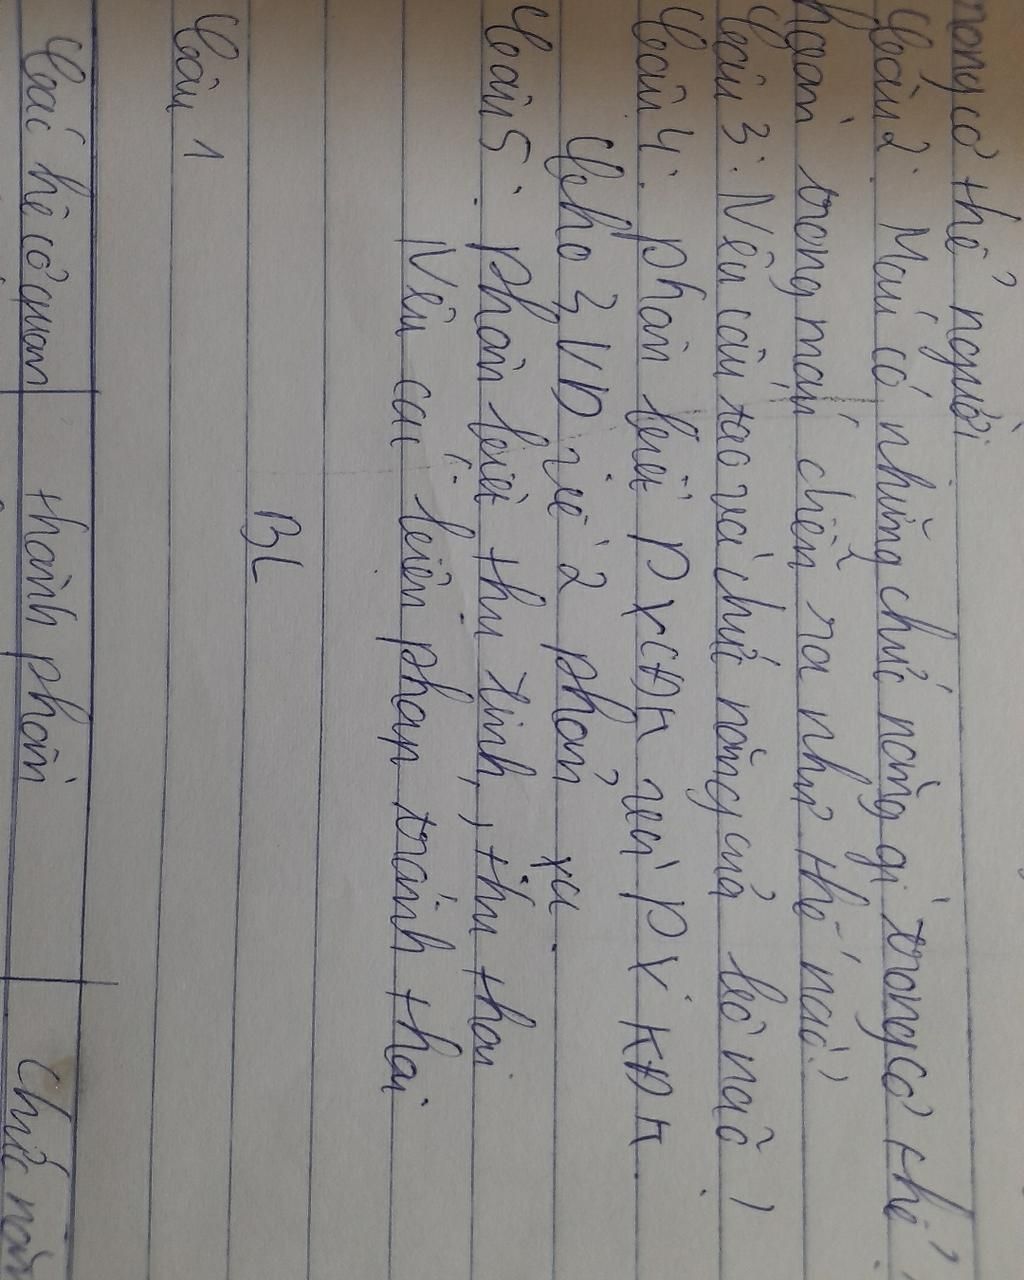 trong cơ thể người
Câu 2: Máu có những chức năng gì trong cơ thể
hoàn trong máu chiến ra như thế nào?
Câu 3: Nêu cấu tạo và chức năng của bộ não?
Câu 4: phân biết PXCĐK với PXKĐK.
Cho 3 VD về 2 phản xạ.
Câu 5: phân biệt thụ tinh, thụ thai
Nêu các biện pháp tránh thai
BL
Câu 1
Các hệ cơ quan | thành phần | Chức năn